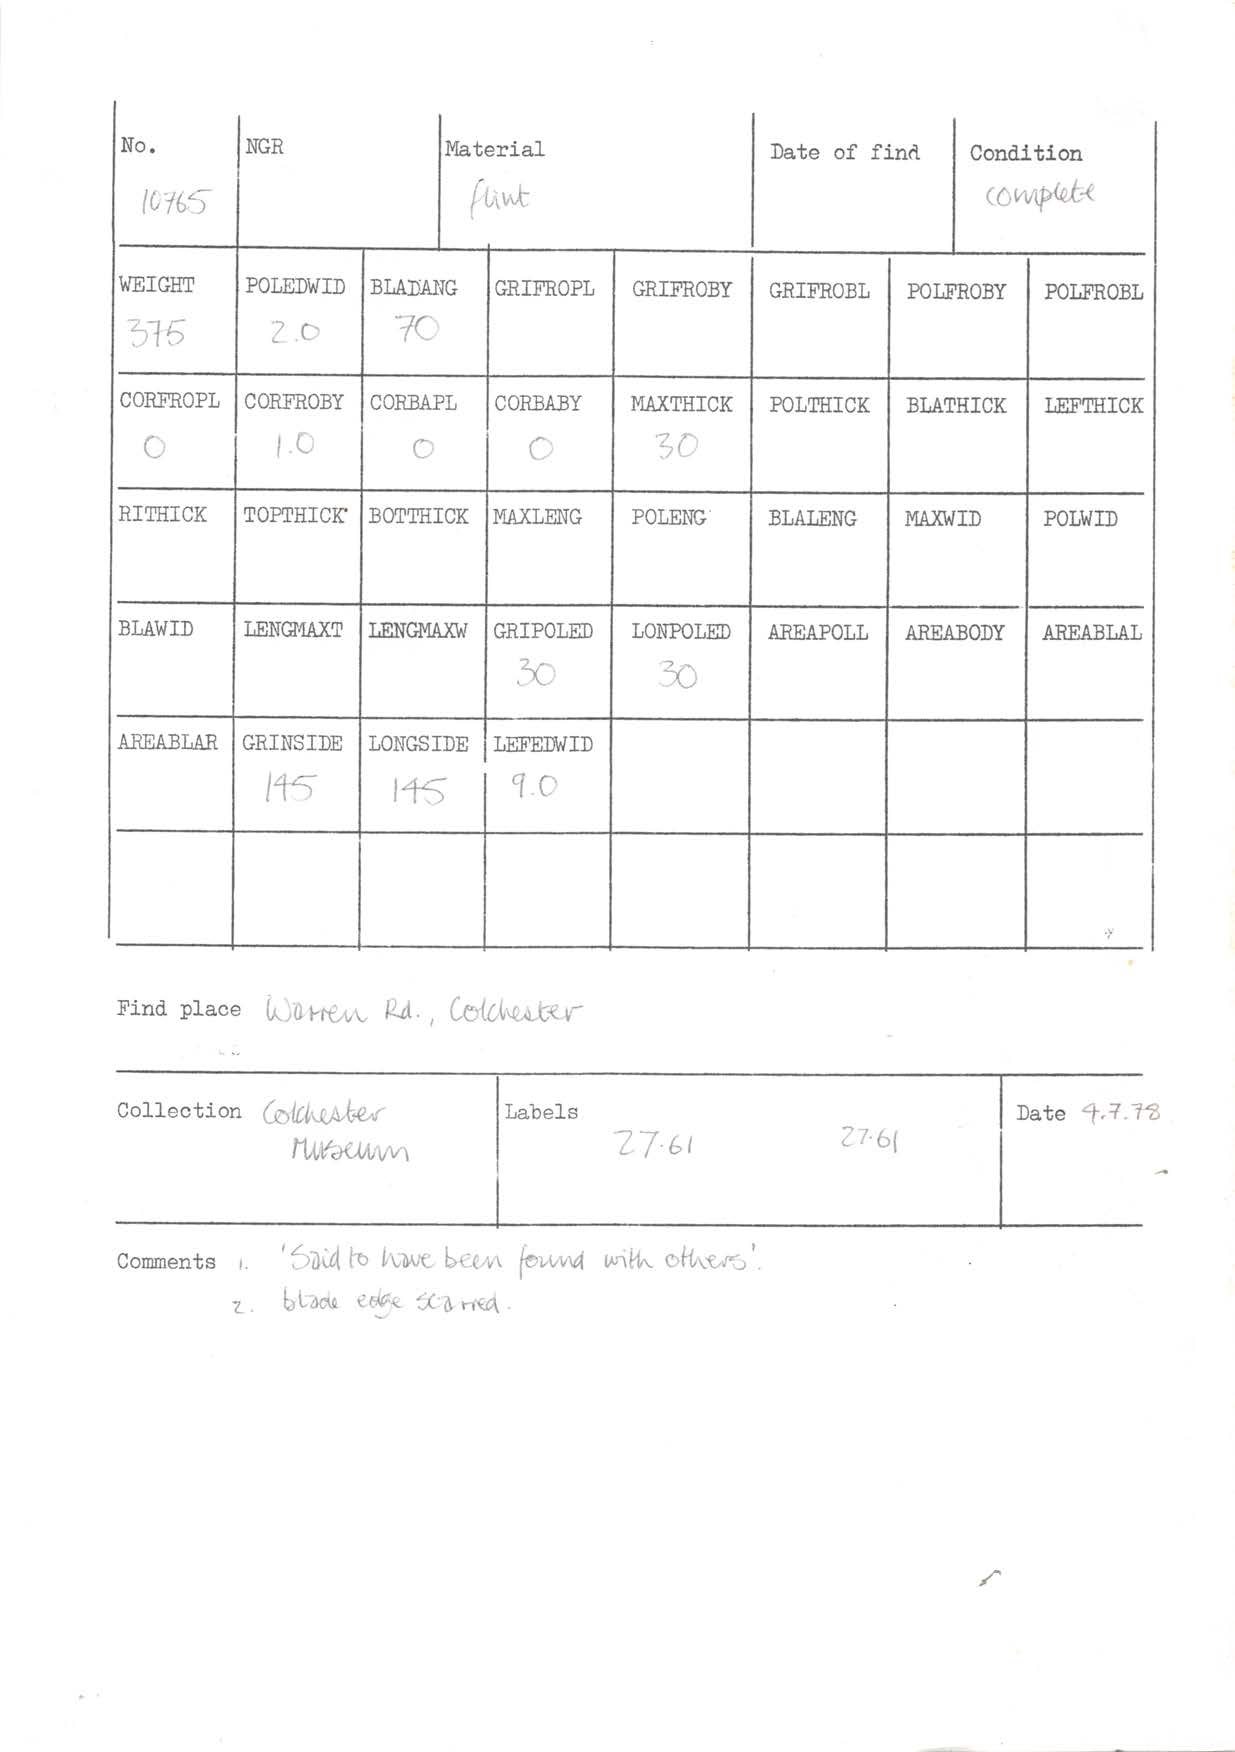 No. NGR Material Date of find Condition
10765 flint complete
WEIGHT POLEDWID BLADANG GRIFROPL GRIFROBY GRIFROBL POLFROBY POLFROBL
375 2.0 70
CORFROPL CORFROBY CORBAPL CORBABY MAXTHICK POLTHICK BLATHICK LEFTHICK
0 1.0 0 0 30
RITHICK TOPTHICK BOTTHICK MAXLENG POLENG BLALENG MAXWID POLWID
BLAWID LENGMAXT LENGMAXW GRIPOLED LONPOLED AREAPOLL AREABODY AREABLAL
30 30
AREABLAR GRINSIDE LONGSIDE LEFEDWID
145 145 9.0
Find place Warren Rd., Colchester
Collection Colchester Labels Date 4.7.78
Museum 27.61 27.61
Comments 1. 'Said to have been found with others'.
2. blade edge scarred.